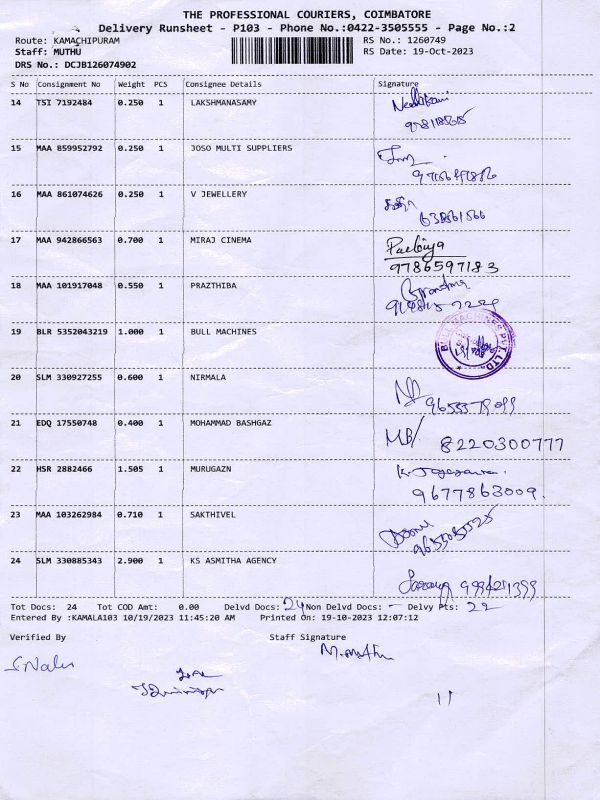 THE PROFESSIONAL COURIERS, COIMBATORE
Delivery Runsheet - P103 - Phone No.:0422-3505555 - Page No.:2
Route: KAMACHIPURAM RS No.: 1260749
Staff: MUTHU RS Date: 19-Oct-2023
DRS No.: DCJB126074902
S No Consignment No Weight PCS Consignee Details Signature
14 TSI 7192484 0.250 1 LAKSHMANASAMY
15 MAA 859952792 0.250 1 JOSO MULTI SUPPLIERS
16 MAA 861074626 0.250 1 V JEWELLERY
17 MAA 942866563 0.700 1 MIRAJ CINEMA
9786597183
18 MAA 101917048 0.550 1 PRAZTHIBA
19 BLR 5352043219 1.000 1 BULL MACHINES
20 SLM 330927255 0.600 1 NIRMALA
21 EDQ 17550748 0.400 1 MOHAMMAD BASHGAZ
MB/ 8220300777
22 HSR 2882466 1.505 1 MURUGAZN
9677863009.
23 MAA 103262984 0.710 1 SAKTHIVEL
24 SLM 330885343 2.900 1 KS ASMITHA AGENCY
Tot Docs: 24 Tot COD Amt: 0.00 Delvd Docs: 24 Non Delvd Docs: - Delvy Pts: 22
Entered By :KAMALA103 10/19/2023 11:45:20 AM Printed On: 19-10-2023 12:07:12
Verified By Staff Signature
M.muthu